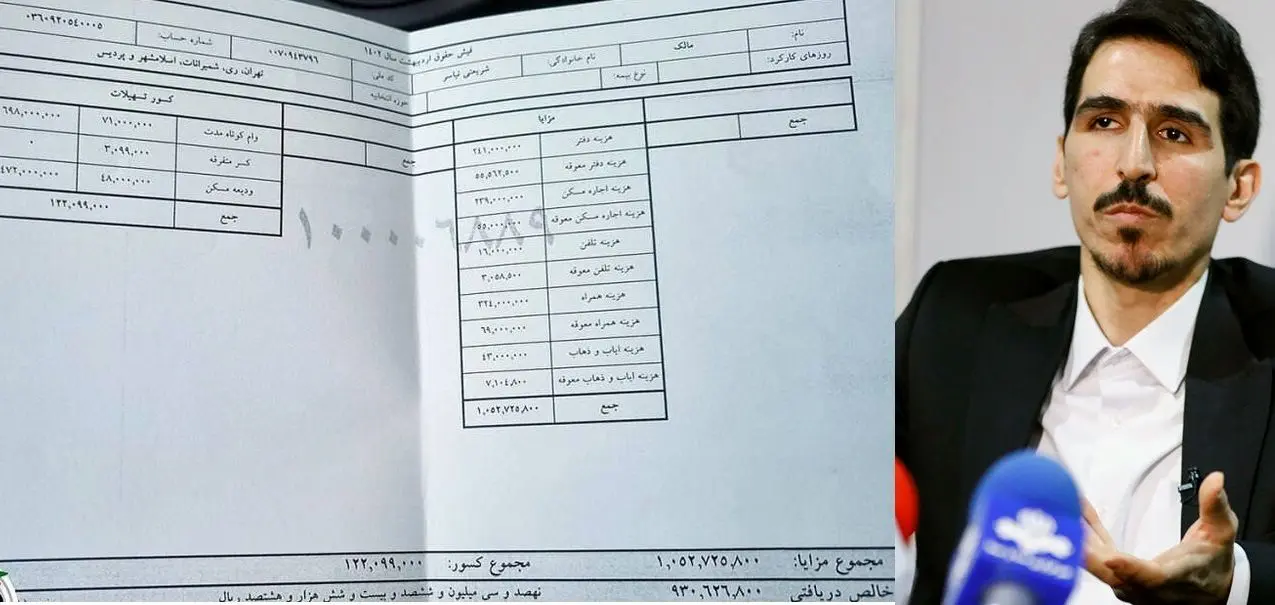 فیش حقوق اردیبهشت سال ۱۴۰۲
نام: مالک نام خانوادگی: شریعتی نیاسر کد ملی ۰۰۷۰۹۴۳۷۹۶ شماره حساب: ۰۳۶۰۹۲۰۵۴۰۰۰۵
روزهای کارکرد: نوع بیمه: حوزه انتخابیه تهران، ری، شمیرانات، اسلامشهر و پردیس
جمع
مزایا
هزینه دفتر ۲۴۱,۰۰۰,۰۰۰
هزینه دفتر معوقه ۵۵,۵۶۲,۵۰۰
هزینه اجاره مسکن ۲۳۹,۰۰۰,۰۰۰
هزینه اجاره مسکن معوقه ۵۵,۰۰۰,۰۰۰
هزینه تلفن ۱۶,۰۰۰,۰۰۰
هزینه تلفن معوقه ۳,۰۵۸,۵۰۰
هزینه همراه ۳۲۴,۰۰۰,۰۰۰
هزینه همراه معوقه ۶۹,۰۰۰,۰۰۰
هزینه ایاب و ذهاب ۴۳,۰۰۰,۰۰۰
هزینه ایاب و ذهاب معوقه ۷,۱۰۴,۸۰۰
جمع ۱,۰۵۲,۷۲۵,۸۰۰
جمع
کسور تسهیلات
وام کوتاه مدت ۷۱,۰۰۰,۰۰۰ ۶۹۸,۰۰۰,۰۰۰
کسر متفرقه ۳,۰۹۹,۰۰۰ ۰
ودیعه مسکن ۴۸,۰۰۰,۰۰۰ ۴۷۲,۰۰۰,۰۰۰
جمع ۱۲۲,۰۹۹,۰۰۰
مجموع مزایا: ۱,۰۵۲,۷۲۵,۸۰۰ مجموع کسور: ۱۲۲,۰۹۹,۰۰۰
خالص دریافتی ۹۳۰,۶۲۶,۸۰۰ نهصد و سی میلیون و ششصد و بیست و شش هزار و هشتصد ریال